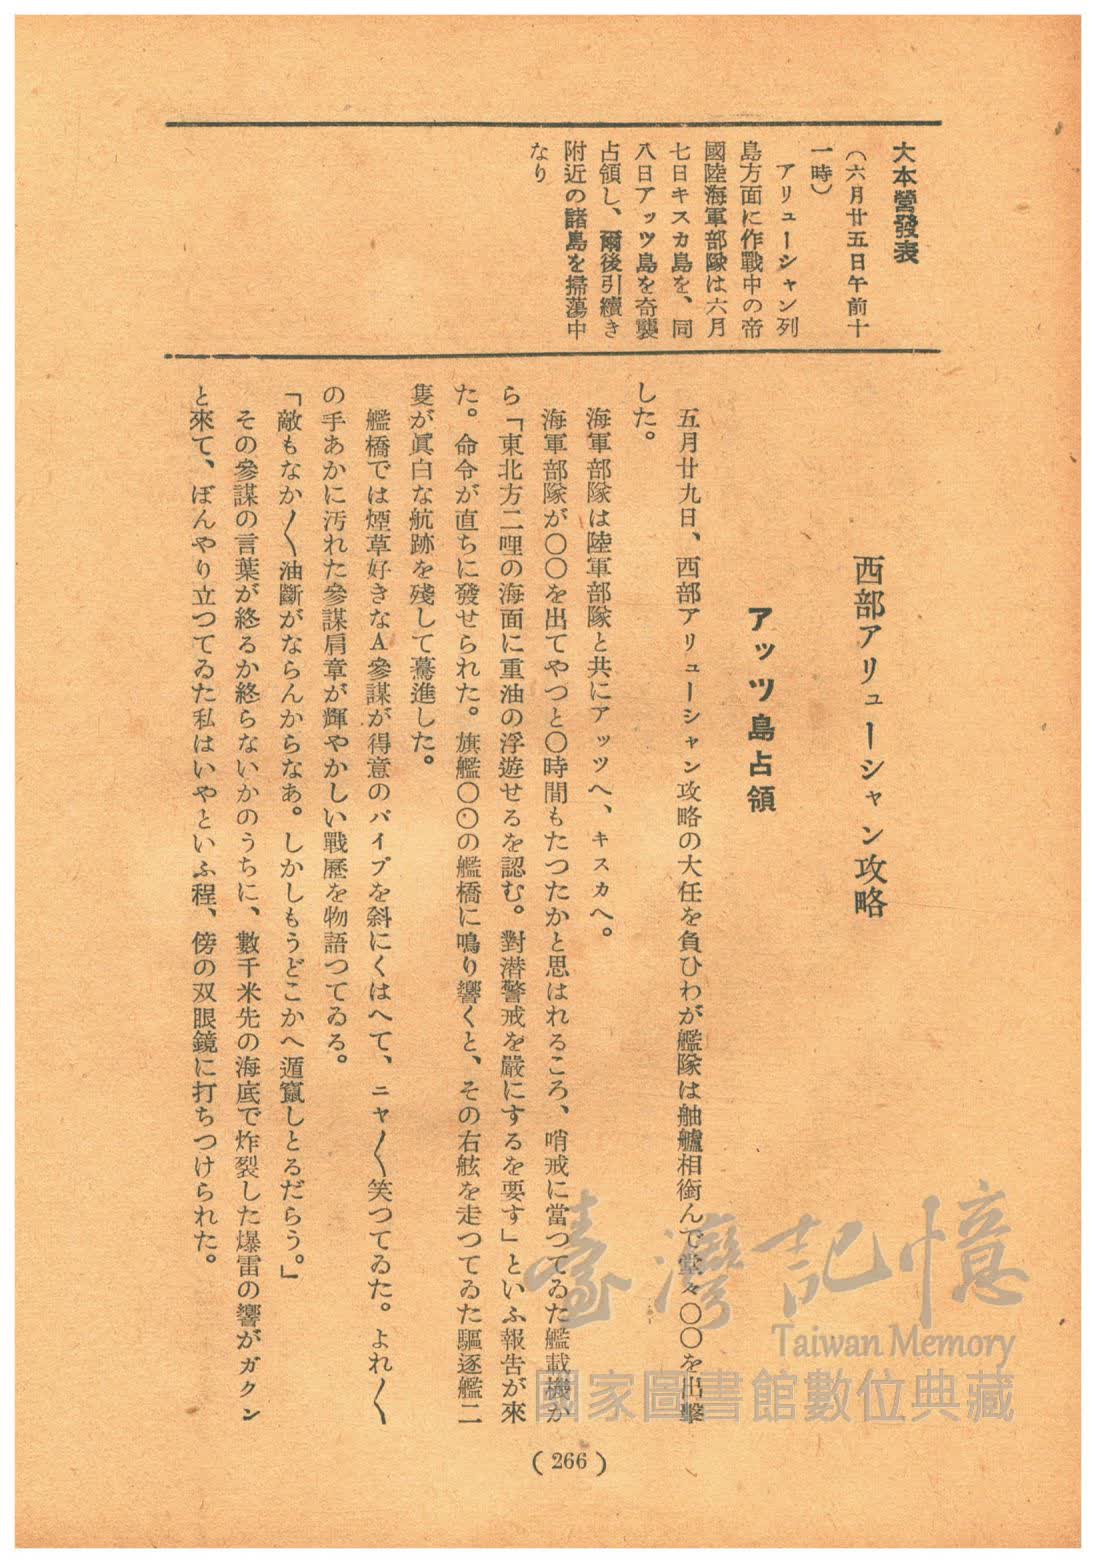 大本營發表
（六月廿五日午前十
一時）
アリューシャン列
島方面に作戰中の帝
國陸海軍部隊は六月
七日キスカ島を、同
八日アッツ島を奇襲
占領し、爾後引續き
附近の諸島を掃蕩中
なり
西部アリューシャン攻略
アッツ島占領
五月廿九日、西部アリューシャン攻略の大任を負ひわが艦隊は舳艫相銜んで堂々〇〇を出擊
した。
海軍部隊は陸軍部隊と共にアッツへ、キスカへ。
海軍部隊が〇〇を出てやつと〇時間もたつたかと思はれるころ、哨戒に當つてゐた艦載機か
ら「東北方二哩の海面に重油の浮遊せるを認む。對潜警戒を嚴にするを要す」といふ報告が來
た。命令が直ちに發せられた。旗艦〇〇の艦橋に鳴り響くと、その右舷を走つてゐた驅逐艦二
隻が眞白な航跡を殘して驀進した。
艦橋では煙草好きなA參謀が得意のパイプを斜にくはへて、ニヤ〱笑つてゐた。よれ〱
の手あかに汚れた參謀肩章が輝やかしい戰歷を物語つてゐる。
「敵もなか〱油斷がならんからなあ。しかしもうどこかへ遁竄しとるだらう。」
その參謀の言葉が終るか終らないかのうちに、數千米先の海底で炸裂した爆雷の響がガクン
と來て、ぼんやり立つてゐた私はいやといふ程、傍の双眼鏡に打ちつけられた。
(266)
臺灣記憶
Taiwan Memory
國家圖書館數位典藏